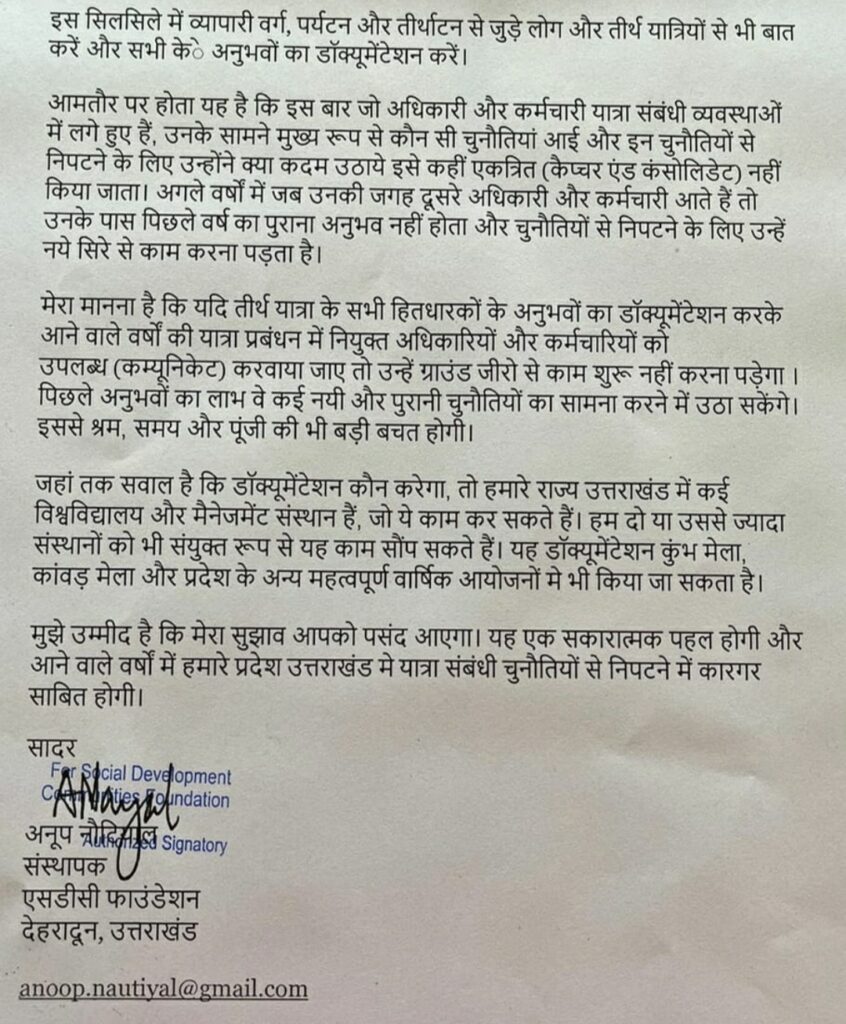 इस सिलसिले में व्यापारी वर्ग, पर्यटन और तीर्थाटन से जुड़े लोग और तीर्थ यात्रियों से भी बात
करें और सभी केे अनुभवों का डॉक्यूमेंटेशन करें।
आमतौर पर होता यह है कि इस बार जो अधिकारी और कर्मचारी यात्रा संबंधी व्यवस्थाओं
में लगे हुए हैं, उनके सामने मुख्य रूप से कौन सी चुनौतियां आई और इन चुनौतियों से
निपटने के लिए उन्होंने क्या कदम उठाये इसे कहीं एकत्रित (कैप्चर एंड कंसोलिडेट) नहीं
किया जाता। अगले वर्षों में जब उनकी जगह दूसरे अधिकारी और कर्मचारी आते हैं तो
उनके पास पिछले वर्ष का पुराना अनुभव नहीं होता और चुनौतियों से निपटने के लिए उन्हें
नये सिरे से काम करना पड़ता है।
मेरा मानना है कि यदि तीर्थ यात्रा के सभी हितधारकों के अनुभवों का डॉक्यूमेंटेशन करके
आने वाले वर्षों की यात्रा प्रबंधन में नियुक्त अधिकारियों और कर्मचारियों को
उपलब्ध (कम्यूनिकेट) करवाया जाए तो उन्हें ग्राउंड जीरो से काम शुरू नहीं करना पड़ेगा ।
पिछले अनुभवों का लाभ वे कई नयी और पुरानी चुनौतियों का सामना करने में उठा सकेंगे।
इससे श्रम, समय और पूंजी की भी बड़ी बचत होगी।
जहां तक सवाल है कि डॉक्यूमेंटेशन कौन करेगा, तो हमारे राज्य उत्तराखंड में कई
विश्वविद्यालय और मैनेजमेंट संस्थान हैं, जो ये काम कर सकते हैं। हम दो या उससे ज्यादा
संस्थानों को भी संयुक्त रूप से यह काम सौंप सकते हैं। यह डॉक्यूमेंटेशन कुंभ मेला,
कांवड़ मेला और प्रदेश के अन्य महत्वपूर्ण वार्षिक आयोजनों मे भी किया जा सकता है।
मुझे उम्मीद है कि मेरा सुझाव आपको पसंद आएगा। यह एक सकारात्मक पहल होगी और
आने वाले वर्षों में हमारे प्रदेश उत्तराखंड मे यात्रा संबंधी चुनौतियों से निपटने में कारगर
साबित होगी।
सादर
For Social Development
Communities Foundation
अनूप नौटियाल
Authorized Signatory
संस्थापक
एसडीसी फाउंडेशन
देहरादून, उत्तराखंड
anoop.nautiyal@gmail.com